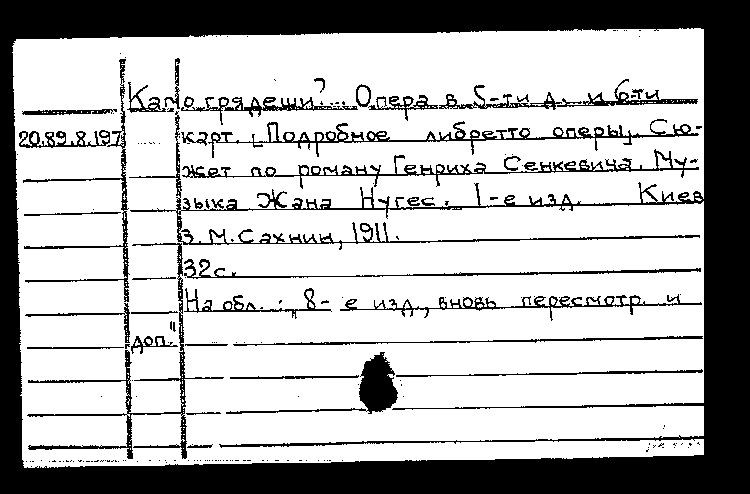 Камо грядеши?.. Опера в 5-ти д. и 6-ти
20.89.8.197 карт. [Подробное либретто оперы]. Сю-
жет по роману Генриха Сенкевича. Му-
зыка Жана Нугес. 1-е изд. Киев
З. М. Сахнин, 1911.
32 с.
На обл.: „8-е изд., вновь пересмотр. и
доп."